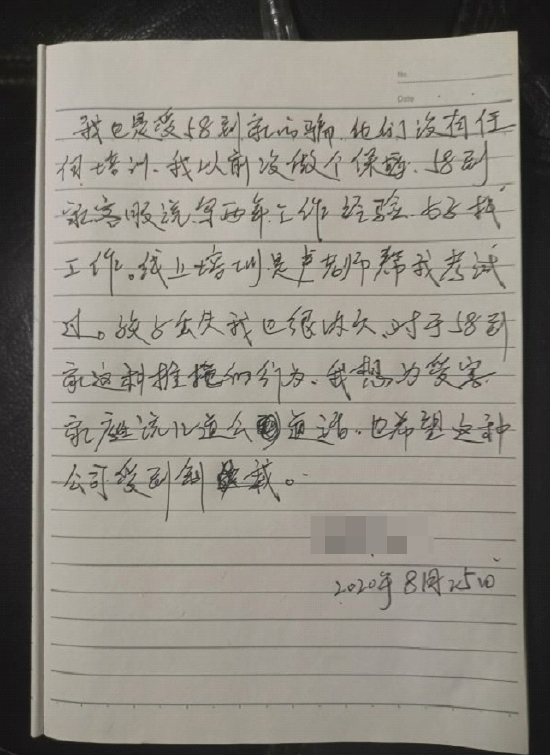 No.
Date
我也是受58到家的骗,他们没有任
何培训、我以前没做个保姆、58到
家客服说写两年工作经验、好找
工作。线上培训是卢老师帮我考试
过。孩子丢失我也很内疚、对于58到
家这种推掩的行为、我想为受害
家庭说几道公道话、也希望这种
公司受到制裁。
2020年8月25日